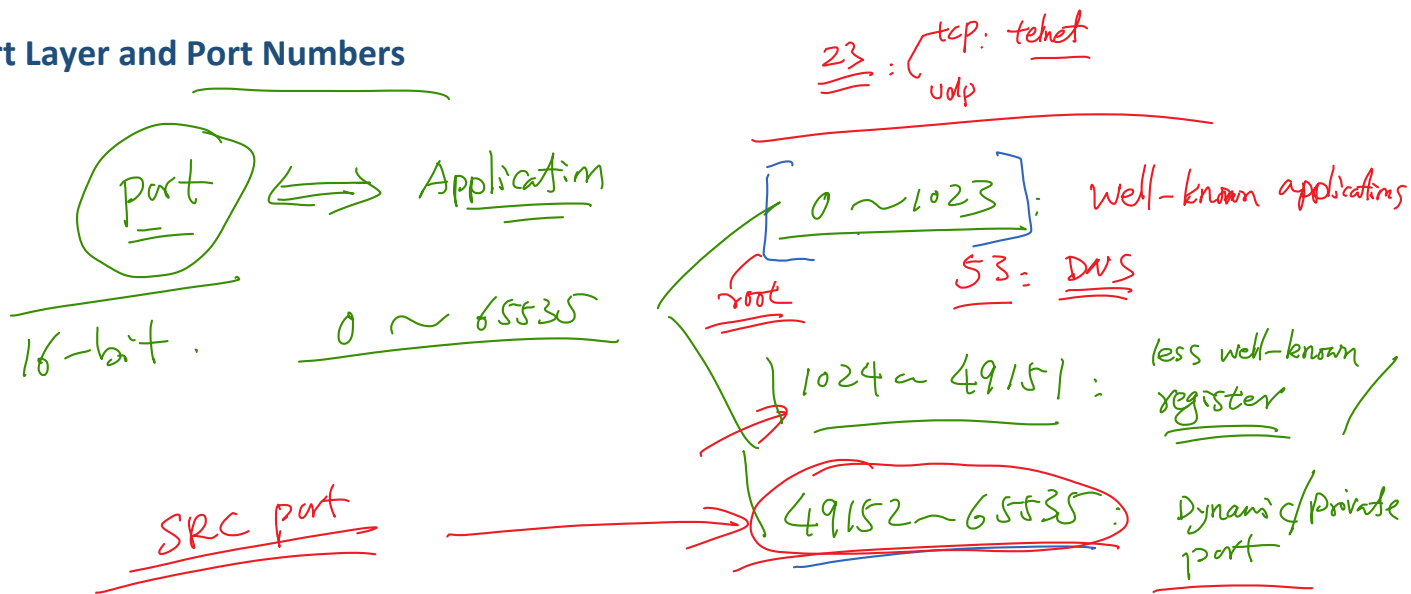 rt Layer and Port Numbers
23 : tcp: telnet
udp
port ⟺ Application
16-bit. 0 ~ 65535
[0 ~ 1023]: well-known applications
root
53: DNS
1024 ~ 49151 : less well-known
register
SRC port → 49152 ~ 65535: Dynamic/Private
port